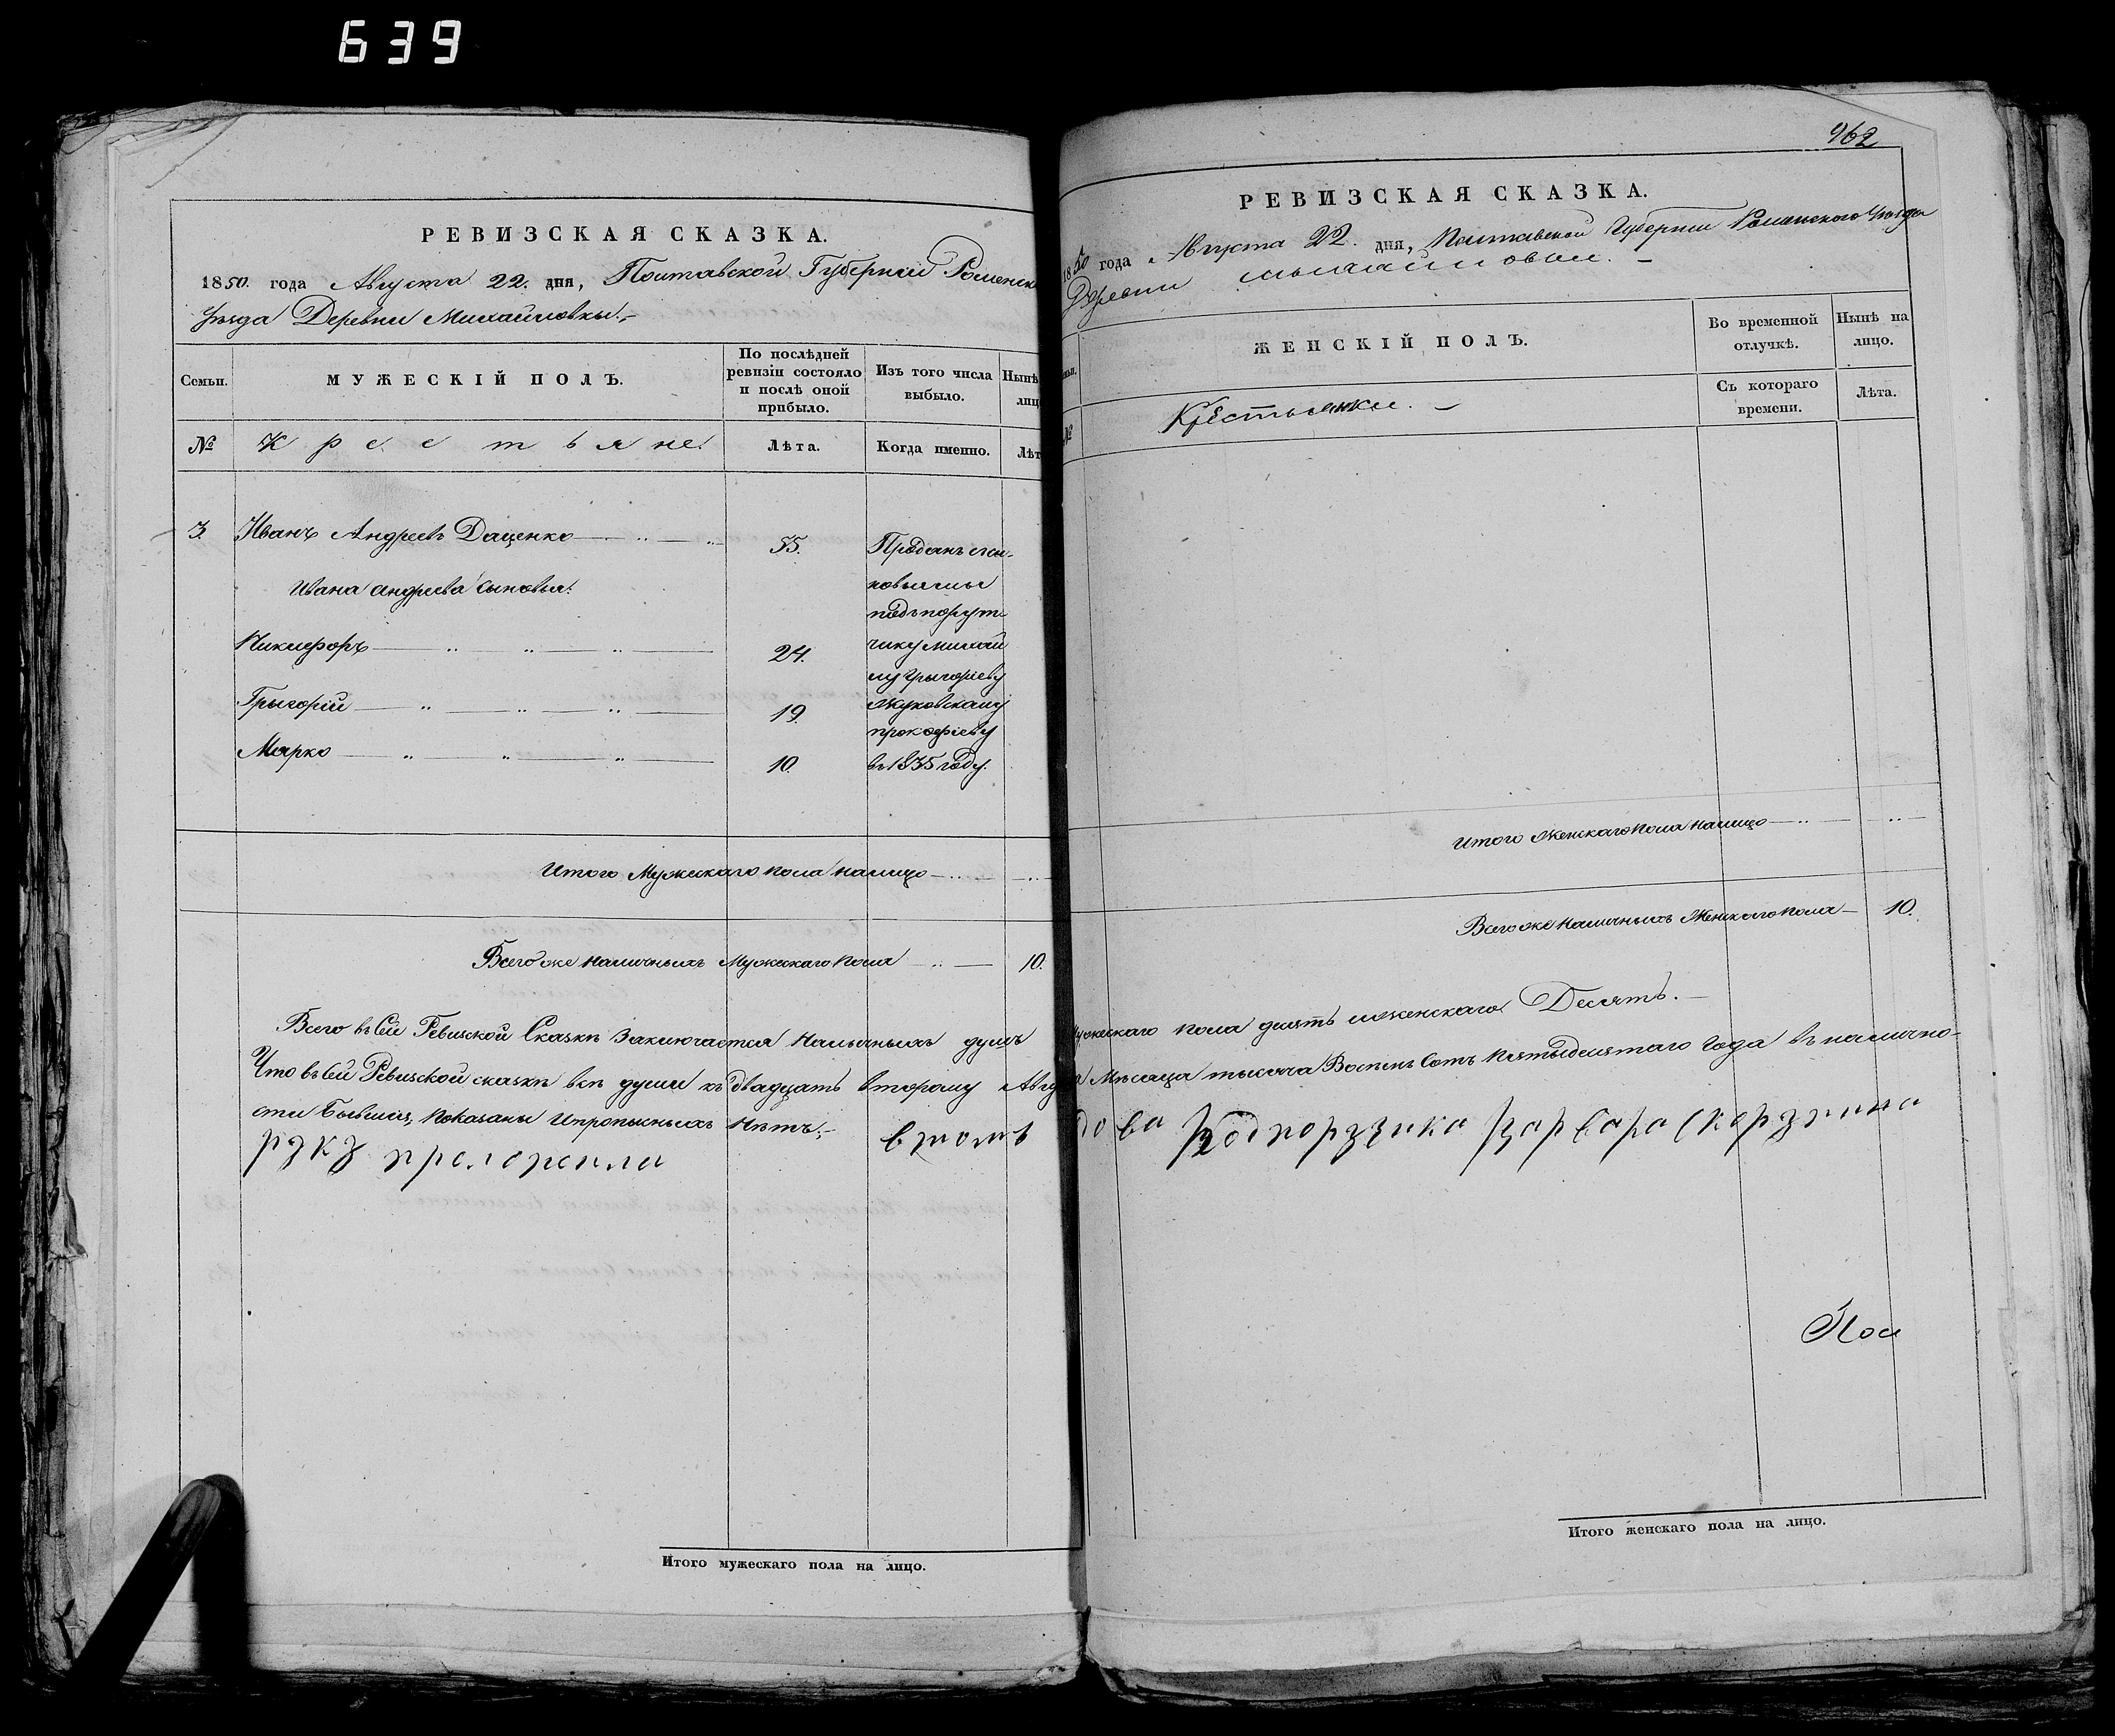 639
РЕВИЗСКАЯ СКАЗКА.
1850. года Августа 22. дня, Полтавской Губерніи Роменск
Уѣзда Деревни Михайловки.
Семьи.
МУЖЕСКІЙ ПОЛЪ.
По послѣдней ревизіи состояло и послѣ оной прибыло.
Изъ того числа выбыло.
Нынѣ лиц
№
Крестьяне.
Лѣта.
Когда именно.
Лѣт
3. Иванъ Андреевъ Даценко 55.
Ивана Андреева сыновья:
Никифоръ 24.
Григорій 19.
Марко 10.
Проданъ с сы-
новьями
подъпорут
чику Михай
лу Григоріеву
Жуковскому
прокофіеву
въ 1835 году.
Итого Мужескаго пола налицо
Всего же наличныхъ Мужескаго пола 10.
Всего въ сей Ревизской Сказкѣ Заключается Наличныхъ душъ
Что въ сей Ревизской сказкѣ всѣ души къ двадцать второму Авгу
сти бывшія, показаны и пропысныхъ нѣтъ;
в томъ
руку
Итого мужескаго пола на лицо.
962
РЕВИЗСКАЯ СКАЗКА.
1850 года Августа 22. дня, Полтавской Губерніи Роменскаго Уѣзда
Деревни
ЖЕНСКІЙ ПОЛЪ.
Во временной отлучкѣ.
Нынѣ на лицо.
№
Крестьянки.
Съ котораго времени.
Лѣта.
Итого Женскаго пола налицо
Всего же наличныхъ Женскаго пола 10.
Мужескаго пола десять и женскаго Десять.
Мѣсяца тысяча Восемь Сотъ пятьдесятаго года въ налично-
дова
Под
Итого женскаго пола на лицо.